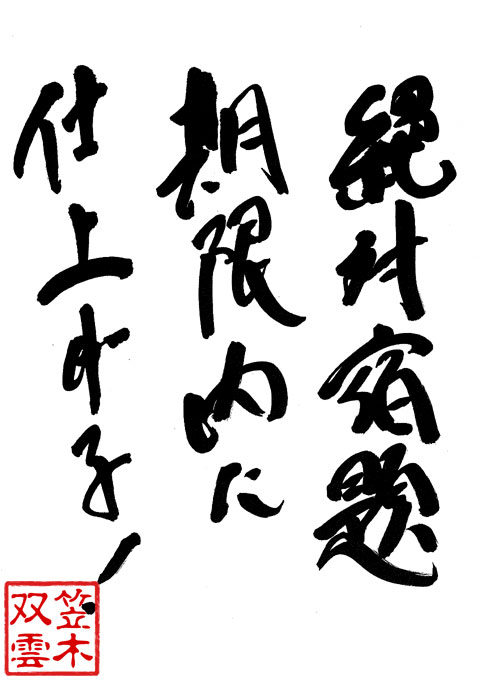 絶対宿題
期限内に
仕上げる!
笠木
双雲